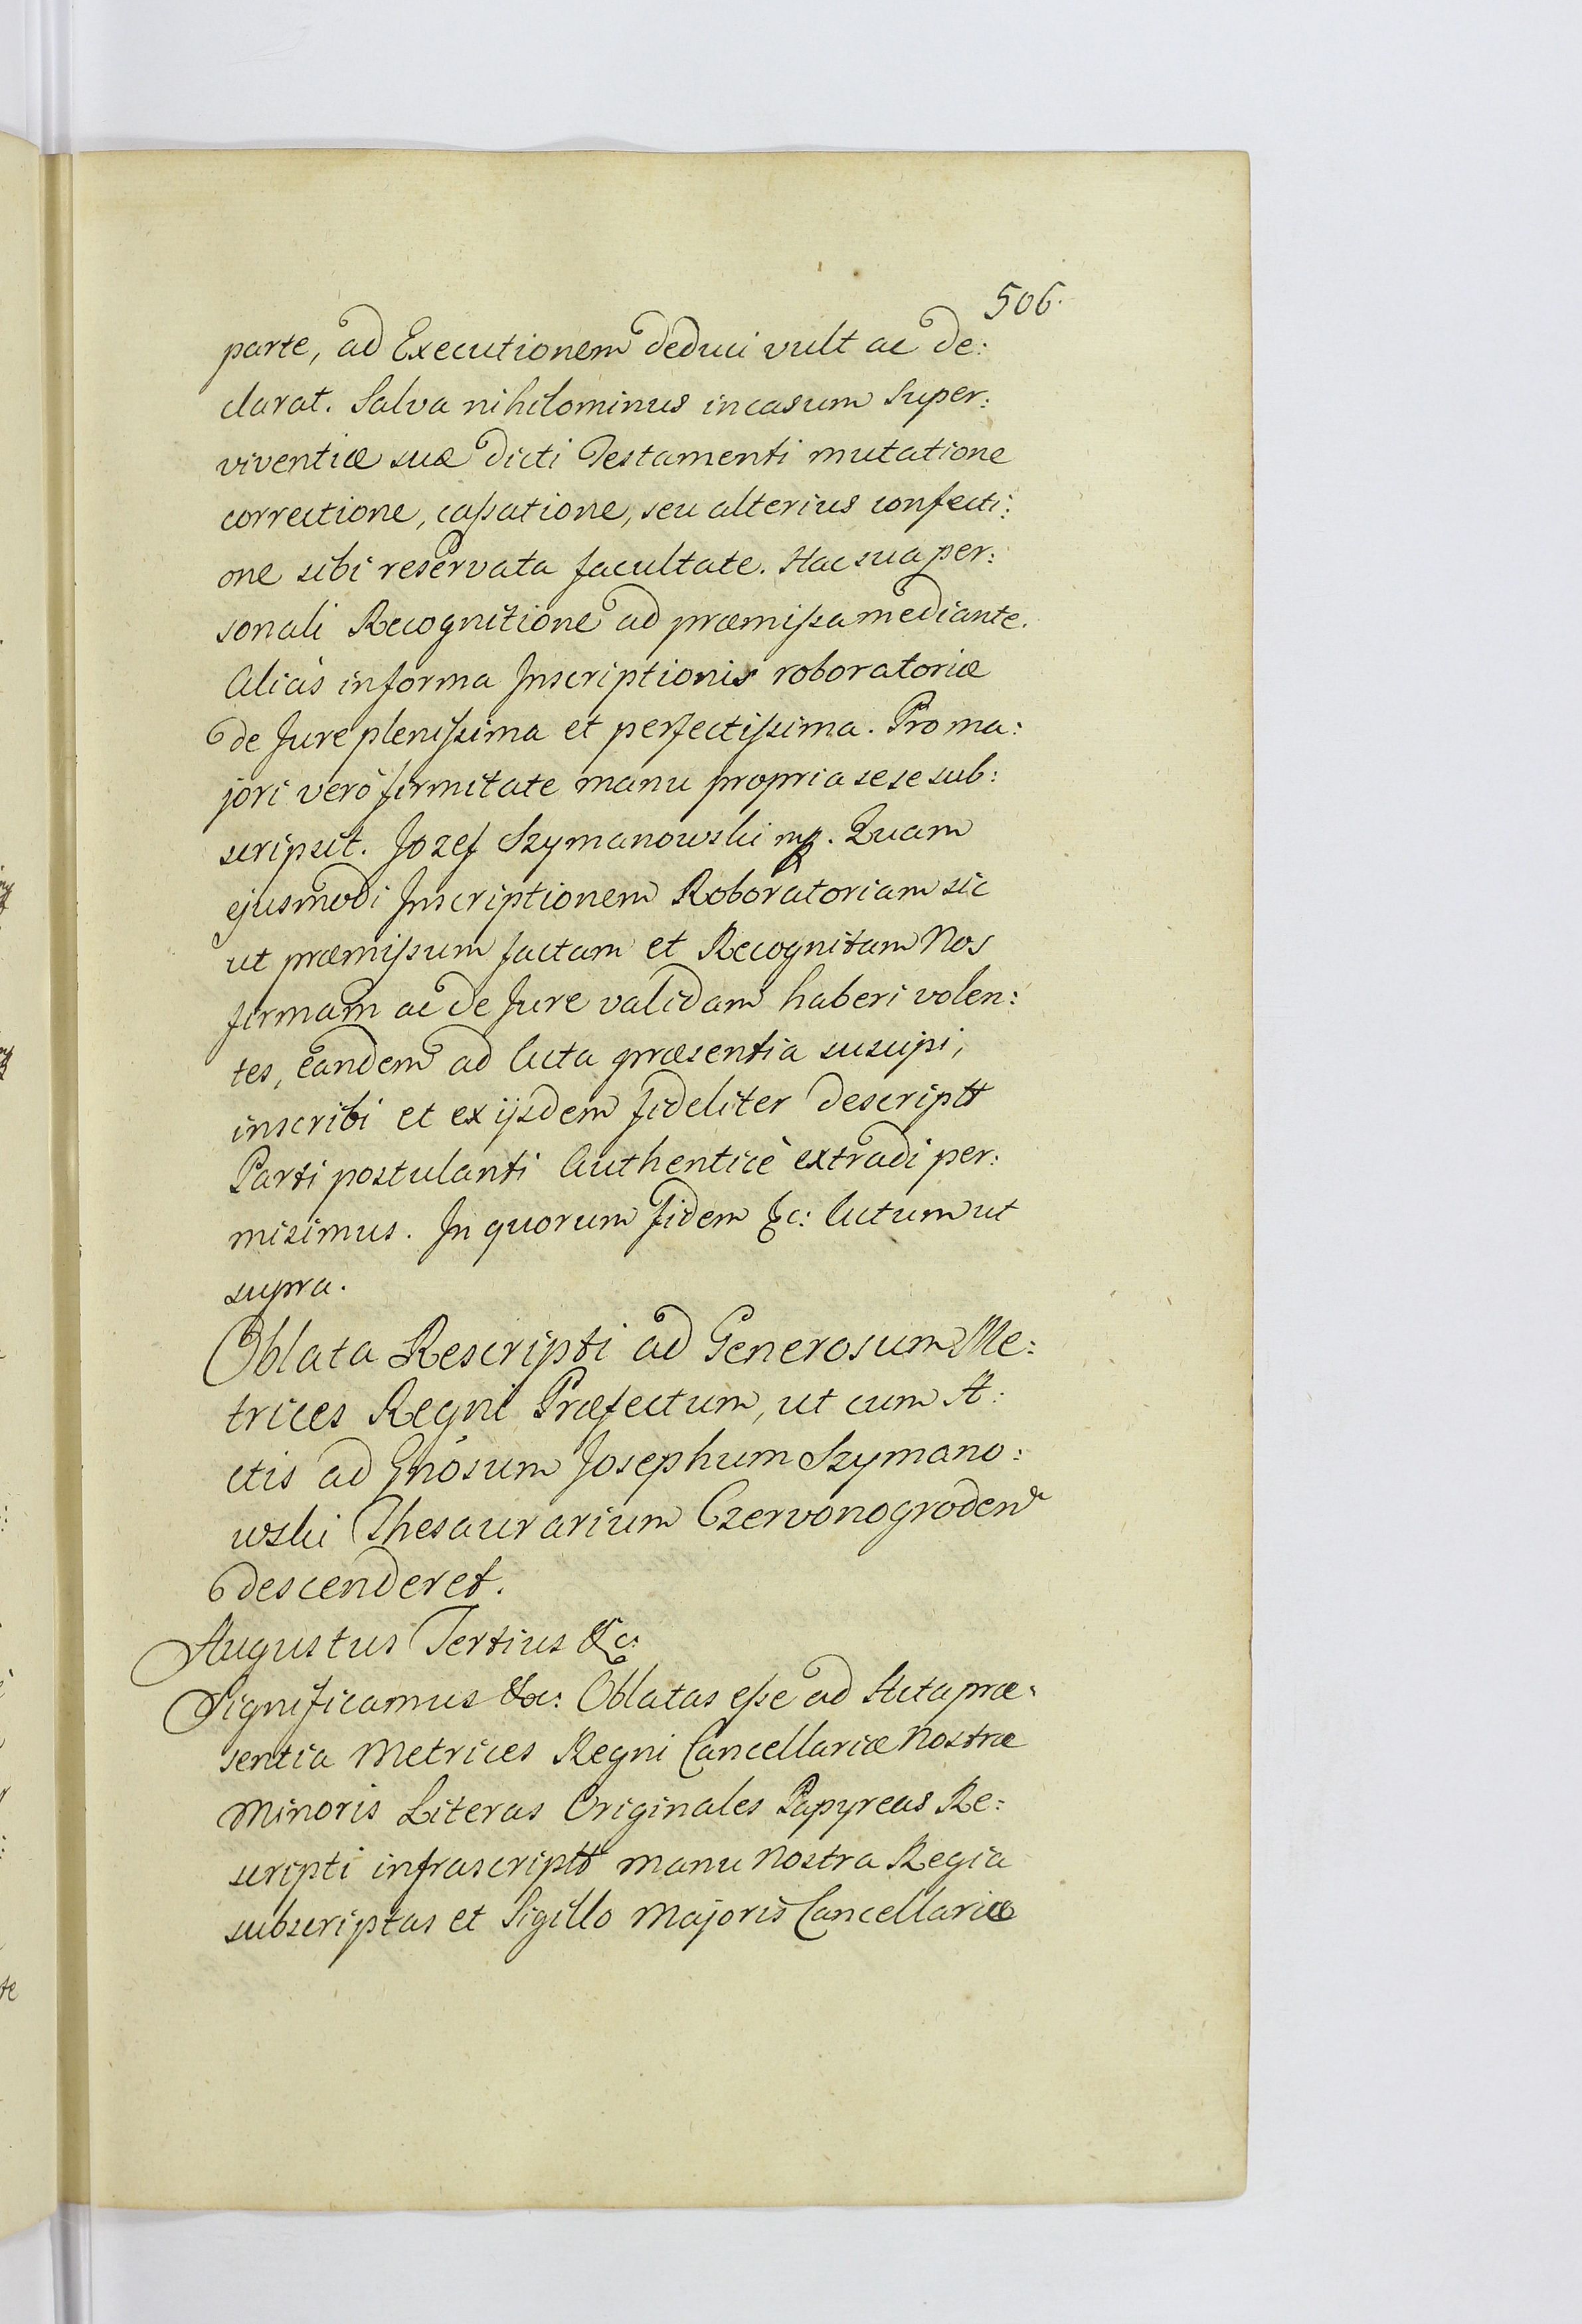 506.
parte, ad Executionem deduci vult ac de:
clarat. Salva nihilominus in casum Super:
viventiæ suæ dicti Testamenti mutatione
correctione, cassatione, seu alterius confecti:
one sibi reservata facultate. Hac sua per:
sonali Recognitione ad præmissa mediante.
Aliàs in forma Inscriptionis roboratoriæ
de Jure plenissima et perfectissima. Pro ma:
jori verò firmitate manu propria sese sub:
scripsit. Jozef Szymanowski mp. Quam
ejusmodi Inscriptionem Roboratoriam sic
ut præmissum factam et Recognitam Nos
firmam ac de Jure validam haberi volen:
tes, eandem ad Acta præsentia suscipi,
inscribi et ex ijsdem fideliter descriptt
Parti postulanti Authenticè extradi per:
misimus. In quorum fidem &c: Actum ut
supra.
Oblata Rescripti ad Generosum Me:
trices Regni Præfectum, ut cum A:
ctis ad Gnosum Josephum Szymano:
wski Thesaurarium Czervonogroden
descenderet.
Augustus Tertius &c:
Significamus &c: Oblatas esse ad Acta præ:
sentia Metrices Regni Cancellariæ Nostræ
Minoris Literas Originales Papyreas Re:
scripti infrascriptt manu Nostra Regia
subscriptas et Sigillo Majoris Cancellariæ